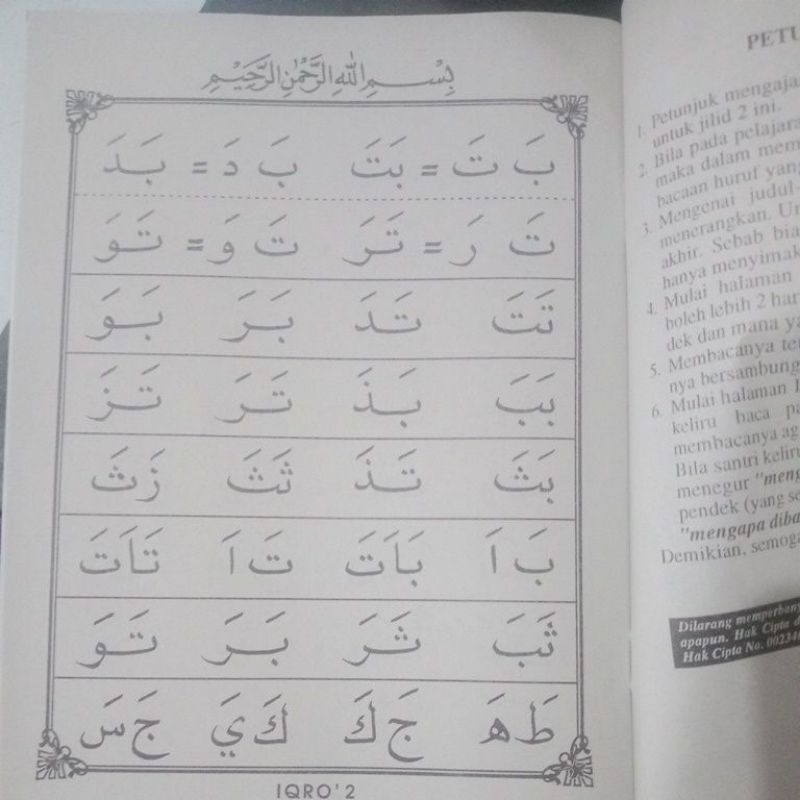 بِسْمِ اللهِ الرَّحْمٰنِ الرَّحِيْمِ
بَ تَ = بَتَ بَ دَ = بَدَ
تَ رَ = تَرَ تَ وَ = تَوَ
تَتَ تَدَ بَرَ بَوَ
بَبَ بَذَ تَرَ تَزَ
بَثَ تَذَ ثَثَ زَثَ
بَ اَ بَاَتَ تَ اَ تَاَتَ
ثَبَ ثَرَ بَرَ تَوَ
طَ هَ جَ كَ كَ يَ جَ سَ
IQRO' 2
PETU
1. Petunjuk mengaja
untuk jilid 2 ini.
2. Bila pada pelajara
maka dalam mem
bacaan huruf yang
3. Mengenai judul-
menerangkan. Un
akhir. Sebab bia
hanya menyimak
4. Mulai halaman
boleh lebih 2 har
dek dan mana ya
5. Membacanya te
nya bersambung
6. Mulai halaman
keliru baca pa
membacanya ag
Bila santri keliru
menegur "meng
pendek (yang se
"mengapa diba
Demikian, semoga
Dilarang memperbany
apapun. Hak Cipta d
Hak Cipta No. 00234